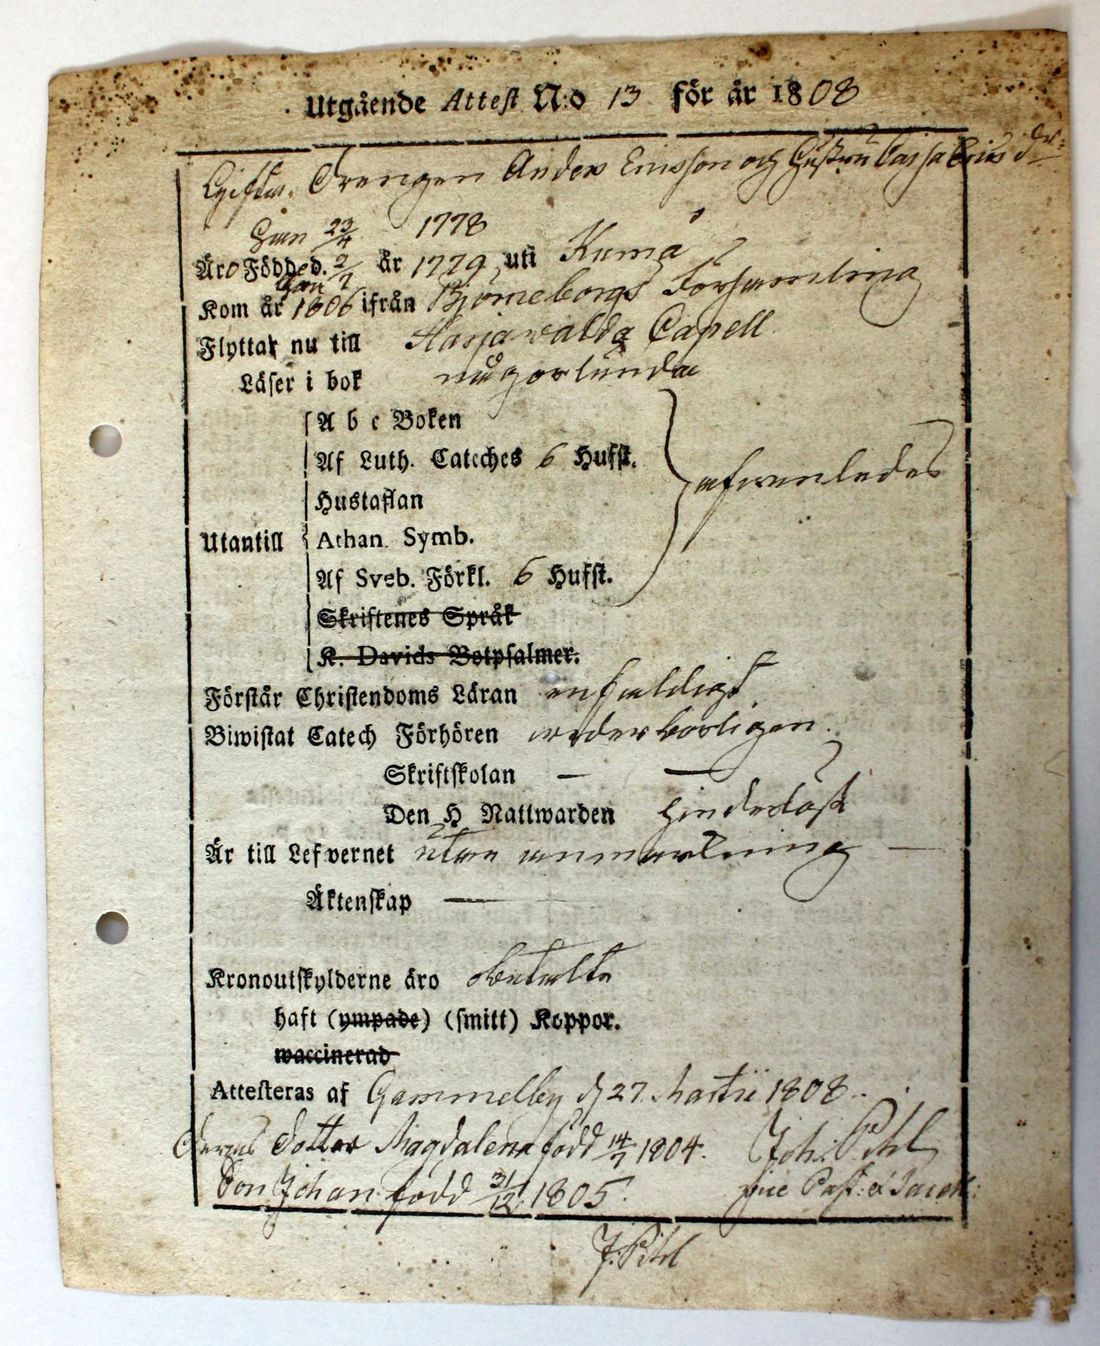 Utgående Attest N:o 13 för år 1808
Gifta Drengen Anders Ersson och Hustru Caisa Eriks dr
Han 23/4 1778
Äro Födde d. 2/7 år 1779 uti Kumå
Kom år 1806 ifrån Björneborgs Församling
Flyttar nu till Harjavalda Capell
Läser i bok någorlunda
A b c Boken
Af Luth. Cateches 6 Hufst.
Hustaflan
afvenledes
Utantill Athan. Symb.
Af Sveb. Förkl. 6 Hufst.
Skriftenes Språk
K. Davids Botpsalmer.
Förstår Christendoms Läran enfaldigt
Biwistat Catech Förhören wederborligen
Skriftskolan — —
Den H Nattwarden hinderlöst
Är till Lefvernet utan anmerkning —
Äktenskap —
Kronoutskylderne äro betalte
haft (ympade) (smitt) Koppor.
waccinerad
Attesteras af Gammelby d 27 Martii 1808.
Deras Dotter Magdalena född 14/7 1804. Joh: Pihl
Son Johan född 31/12 1805. Past:
J. Pihl